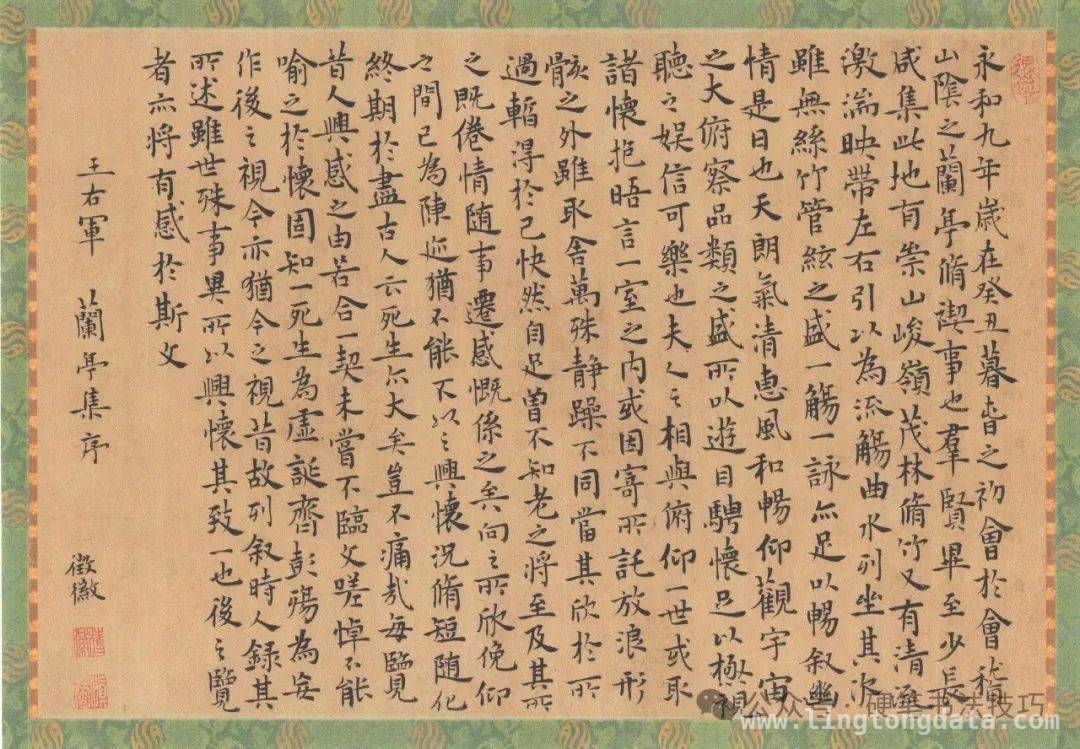 永和九年歲在癸丑暮春之初會於會稽
山陰之蘭亭脩禊事也羣賢畢至少長
咸集此地有崇山峻嶺茂林脩竹又有清流
激湍映帶左右引以為流觴曲水列坐其次
雖無絲竹管絃之盛一觴一詠亦足以暢叙幽
情是日也天朗氣清惠風和暢仰觀宇宙
之大俯察品類之盛所以遊目騁懷足以極視
聽之娛信可樂也夫人之相與俯仰一世或取
諸懷抱晤言一室之内或因寄所託放浪形
骸之外雖取舍萬殊静躁不同當其欣於所
遇暫得於己快然自足曾不知老之將至及其所
之既倦情随事遷感慨係之矣向之所欣俛仰
之間已為陳迹猶不能不以之興懷況脩短随化
終期於盡古人云死生亦大矣豈不痛哉每覽
昔人興感之由若合一契未嘗不臨文嗟悼不能
喻之於懷固知一死生為虛誕齊彭殤為妄
作後之視今亦猶今之視昔故列叙時人録其
所述雖世殊事異所以興懷其致一也後之覽
者亦將有感於斯文
王右軍 蘭亭集序 徵徽
公众号 硬笔书法技巧
www.lingtongdata.com